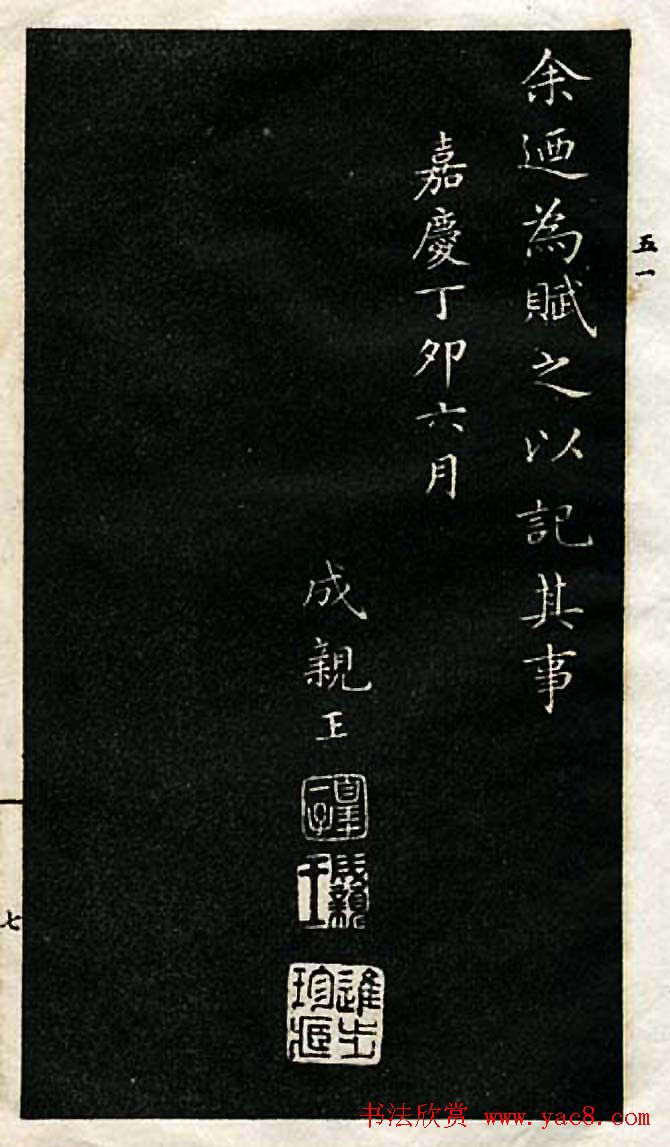 余迺為賦之以記其事
嘉慶丁卯六月
成親王
皇十一子
成親王
五一
七
书法欣赏 www.yac8.com